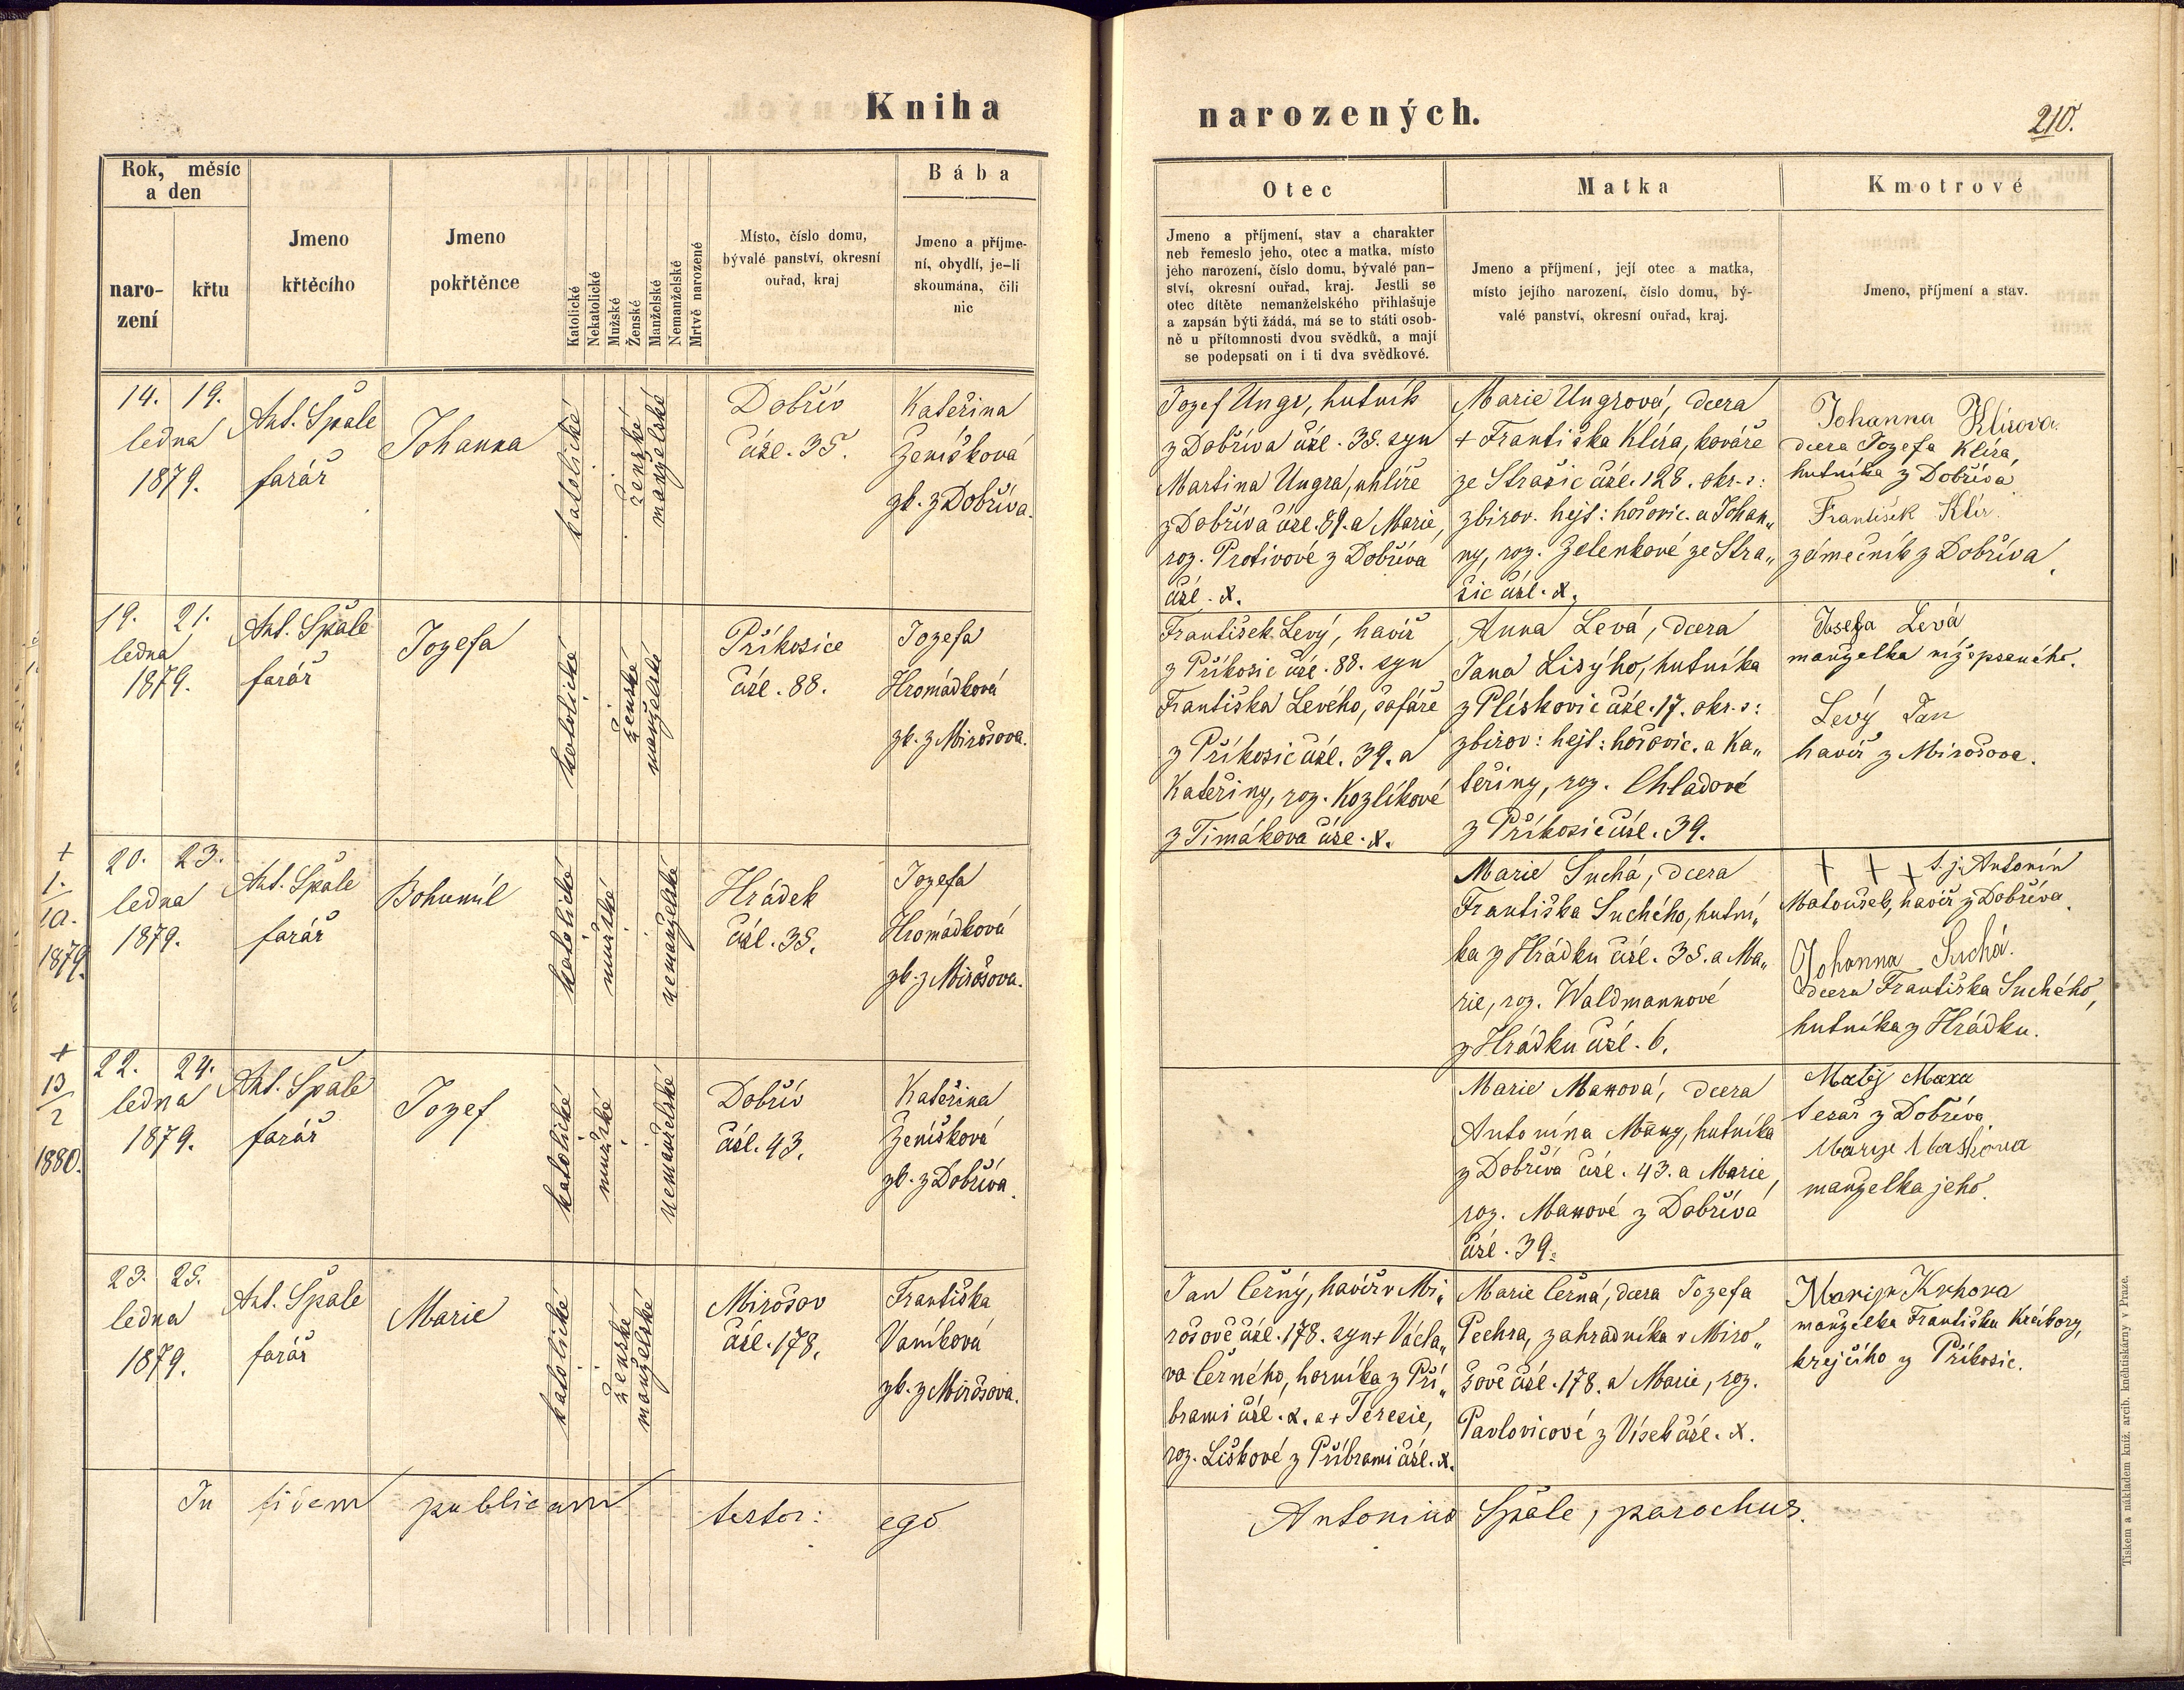 Kniha narozených.
210.
Rok, měsíc
a den
naro-
zení
křtu
Jmeno
křtěcího
Jmeno
pokřtěnce
Katolické
Nekatolické
Mužské
Ženské
Manželské
Nemanželské
Mrtvě narozené
Místo, číslo domu,
bývalé panství, okresní
ouřad, kraj
Bába
Jmeno a příjme-
ní, obydlí, je-li
skoumána, čili
nic
Otec
Jmeno a příjmení, stav a charakter
neb řemeslo jeho, otec a matka, místo
jeho narození, číslo domu, bývalé pan-
ství, okresní ouřad, kraj. Jestli se
otec dítěte nemanželského přihlašuje
a zapsán býti žádá, má se to státi osob-
ně u přítomnosti dvou svědků, a mají
se podepsati on i ti dva svědkové.
Matka
Jmeno a příjmení, její otec a matka,
místo jejího narození, číslo domu, bý-
valé panství, okresní ouřad, kraj.
Kmotrové
Jmeno, příjmení a stav.
14. 19.
ledna
1879.
Ant. Spále
farář
Johanna
katolické
ženské
manželské
Dobřív
čísl. 35.
Kateřina
Zeníšková
zk. z Dobříva.
Jozef Ungr, hutník
z Dobříva čísl. 35. syn
Martina Ungra, uhlíře
z Dobříva čísl. 89. a Marie,
roz. Protivové z Dobříva
čísl. X.
Marie Ungrová, dcera
+ Františka Klíra, kováře
ze Strašic čísl. 128. okr. s:
zbirov. hejt: hořovic. a Johan„
ny, roz. Zelenkové ze Stra„
šic čísl. X.
Johanna Klírova.
dcera Jozefa Klíra,
hutníka z Dobříva
František Klír.
zámečník z Dobříva.
19. 21.
ledna
1879.
Ant. Spále
farář
Jozefa
katolické
ženské
manželské
Příkosice
čísl. 88.
Jozefa
Hromádková
zk. z Mirošova.
František Levý, havíř
z Příkosic čísl. 88. syn
Františka Levého, šafáře
z Příkosic čísl. 39. a
Kateřiny, roz. Kozlíkové
z Timákova čísl. X.
Anna Levá, dcera
Jana Lisýho, hutníka
z Plískovic čísl. 17. okr. s:
zbirov: hejt: hořovic. a Ka„
teřiny, roz. Chladové
z Příkosic čísl. 39.
Josefa Levá
manželka nížepsaného.
Levý Jan
havíř z Mirošova.
+
1.
10.
1879.
20. 23.
ledna
1879.
Ant. Spále
farář
Bohumil
katolické
mužské
nemanželské
Hrádek
čísl. 35.
Jozefa
Hromádková
zk. z Mirošova.
Marie Suchá, dcera
Františka Suchého, hutní„
ka z Hrádku čísl. 35. a Ma„
rie, roz. Waldmannové
z Hrádku čísl. 6.
+ + + t. j. Antonín
Matoušek, havíř z Dobříva.
Johanna Suchá.
dcera Františka Suchého,
hutníka z Hrádku.
+
13
2
1880.
22. 24.
ledna
1879.
Ant. Spále
farář
Jozef
katolické
mužské
nemanželské
Dobřív
čísl. 43.
Kateřina
Zeníšková
zk. z Dobříva.
Marie Maxová, dcera
Antonína Maxy, hutníka
z Dobříva čísl. 43. a Marie,
roz. Maxové z Dobříva
čísl. 39.
Matěj Maxa
tesař z Dobříva
manželka jeho.
23. 25.
ledna
1879.
Ant. Spále
farář
Marie
katolické
ženské
manželské
Mirošov
čísl. 178.
Františka
Vaníková
zk. z Mirošova.
Jan Černý, havíř v Mi„
rošově čísl. 178. syn + Václa„
va Černého, horníka z Pří„
brami čísl. X. a + Terezie,
roz. Liškové z Příbrami čísl. X.
Marie Černá, dcera Jozefa
Pechra, zahradníka v Miro„
šově čísl. 178. a Marie, roz.
Pavlovicové z Vísek čísl. X.
manželka Františka
krejčího z Příkosic.
In fidem publicam testor: ego Antonius Spále, parochus.
Tiskem a nákladem kníž. arcib. kněhtiskárny v Praze.